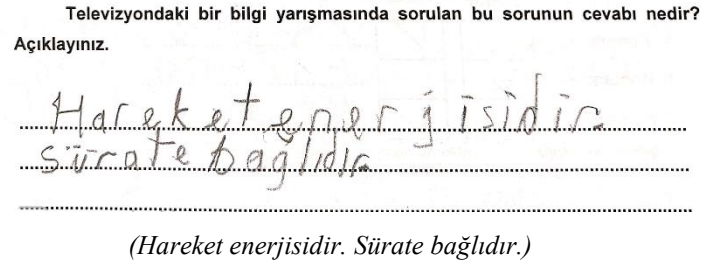 Televizyondaki bir bilgi yarışmasında sorulan bu sorunun cevabı nedir?
Açıklayınız.
Hareket enerjisidir.
Sürate bağlıdır.
(Hareket enerjisidir. Sürate bağlıdır.)